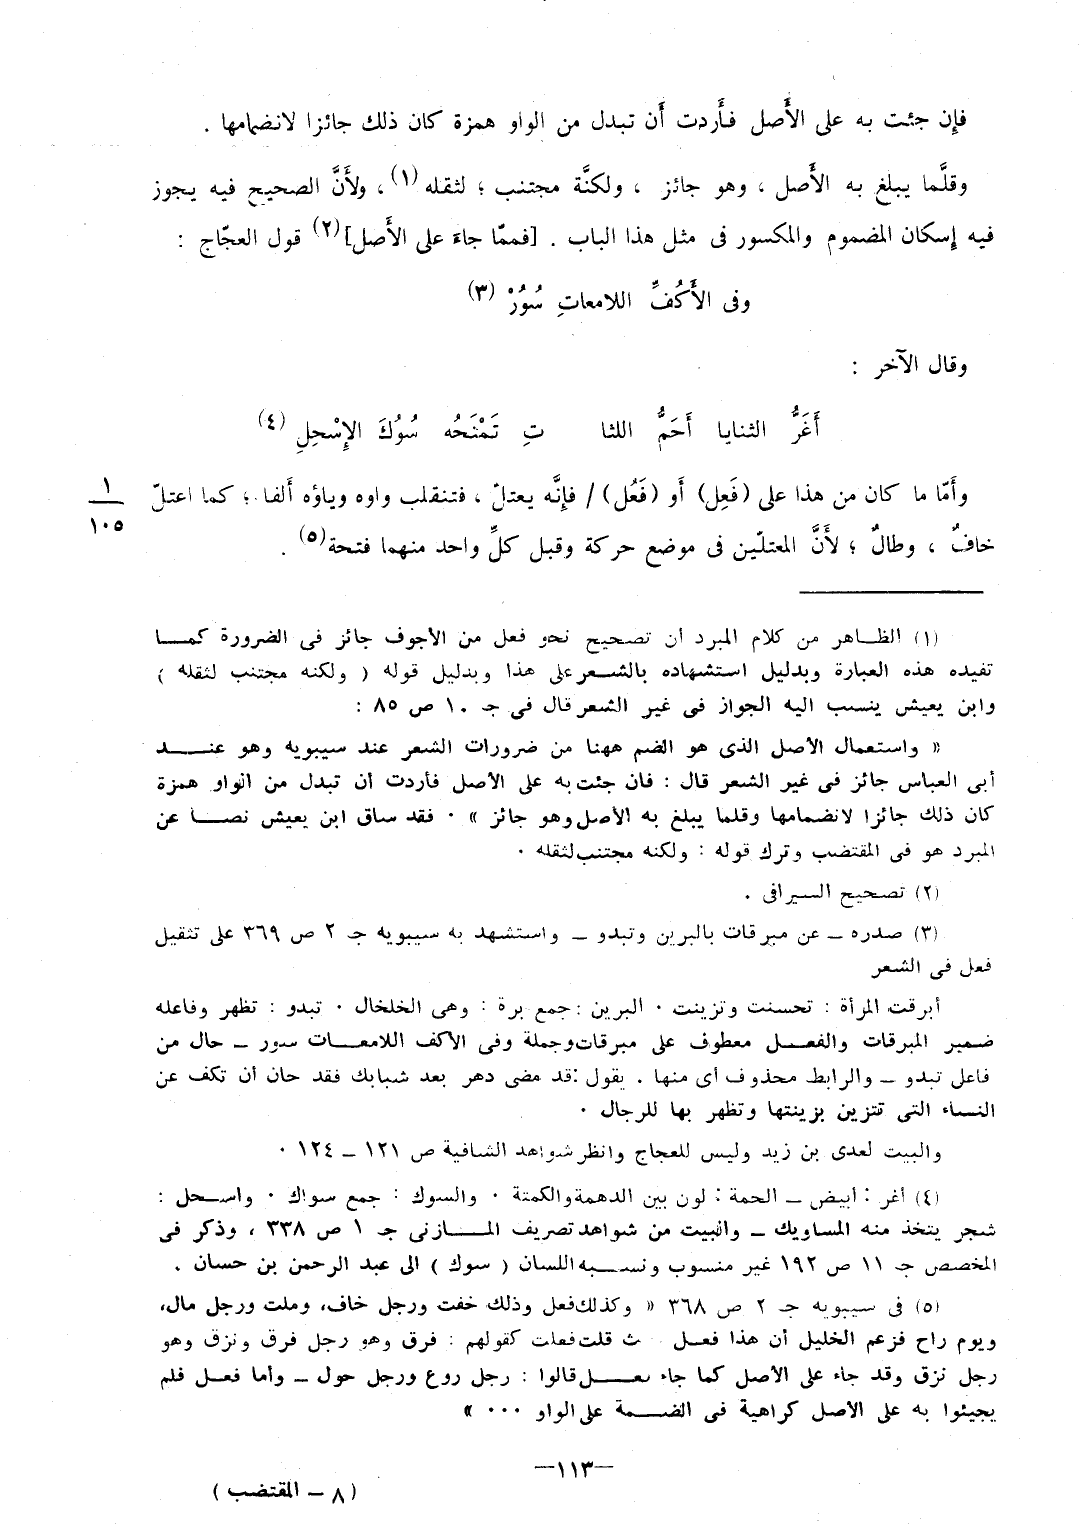 فإن جئت به على الأَصل فأَردت أَن تبدل من الواو همزة كان ذلك جائزا لانضمامها .
وقلَّما يبلغ به الأَصل ، وهو جائز ، ولكنَّة مجتنب ؛ لثقله (١) ، ولأَنَّ الصحيح فيه يجوز
فيه إسكان المضموم والمكسور فى مثل هذا الباب . [فممّا جاءَ على الأَصل] (٢) قول العجّاج :
وفى الأَكُفِّ اللامعاتِ سُوُرْ (٣)
وقال الآخر :
أَغَرُّ الثنايا أَحَمُّ اللثا تِ تَمْنَحُه سُوُكَ الإِسْحِلِ (٤)
وأَمّا ما كان من هذا على (فَعِل) أَو (فَعُل) / فإِنَّه يعتلّ ، فتنقلب واوه وياؤه أَلفا ؛ كما اعتلّ
١
١٠٥
خافٌ ، وطالٌ ؛ لأَنَّ المعتلّين فى موضع حركة وقبل كلِّ واحد منهما فتحة (٥) .
(١) الظــاهر من كلام المبرد أن تصحيح نحو فعل من الأجوف جائز فى الضرورة كمــا
تفيده هذه العبارة وبدليل استشهاده بالشــعر على هذا وبدليل قوله ( ولكنه مجتنب لثقله )
وابن يعيش ينسب اليه الجواز فى غير الشعر قال فى جـ ١٠ ص ٨٥ :
« واستعمال الأصل الذى هو الضم ههنا من ضرورات الشعر عند سيبويه وهو عنــد
أبى العباس جائز فى غير الشعر قال : فان جئت به على الأصل فأردت أن تبدل من الواو همزة
كان ذلك جائزا لانضمامها وقلما يبلغ به الأصل وهو جائز » ٠ فقد ساق ابن يعيش نصــا عن
المبرد هو فى المقتضب وترك قوله : ولكنه مجتنب لثقله ٠
(٢) تصحيح السيرافى .
(٣) صدره ــ عن مبرقات بالبرين وتبدو ــ واستشهد به سيبويه جـ ٢ ص ٣٦٩ على تثقيل
فعل فى الشعر
أبرقت المرأة : تحسنت وتزينت ٠ البرين : جمع برة : وهى الخلخال ٠ تبدو : تظهر وفاعله
ضمير المبرقات والفعــل معطوف على مبرقات وجملة وفى الأكف اللامعــات سور ــ حال من
فاعل تبدو ــ والرابط محذوف أى منها . يقول : قد مضى دهر بعد شبابك فقد حان أن تكف عن
النساء التى تتزين بزينتها وتظهر بها للرجال ٠
والبيت لعدى بن زيد وليس للعجاج وانظر شواهد الشافية ص ١٢١ ــ ١٢٤ ٠
(٤) أغر : أبيض ــ الحمة : لون بين الدهمة والكمتة ٠ والسوك : جمع سواك ٠ واسـحل :
شجر يتخذ منه المساويك ــ والبيت من شواهد تصريف المــازنى جـ ١ ص ٣٣٨ ، وذكر فى
المخصص جـ ١١ ص ١٩٢ غير منسوب ونســبه اللسان ( سوك ) الى عبد الرحمن بن حسان .
(٥) فى سيبويه جـ ٢ ص ٣٦٨ « وكذلك فعل وذلك خفت ورجل خاف، وملت ورجل مال،
ويوم راح فزعم الخليل أن هذا فعــل قلت فعلت كقولهم : فرق وهو رجل فرق ونزق وهو
رجل نزق وقد جاء على الأصل كما جاء قالوا : رجل روع ورجل حول ــ وأما فعــل فلم
يجيئوا به على الأصل كراهية فى الضــمة على الواو ٠٠٠ »
—١١٣—
( ٨ ــ المقتضب )